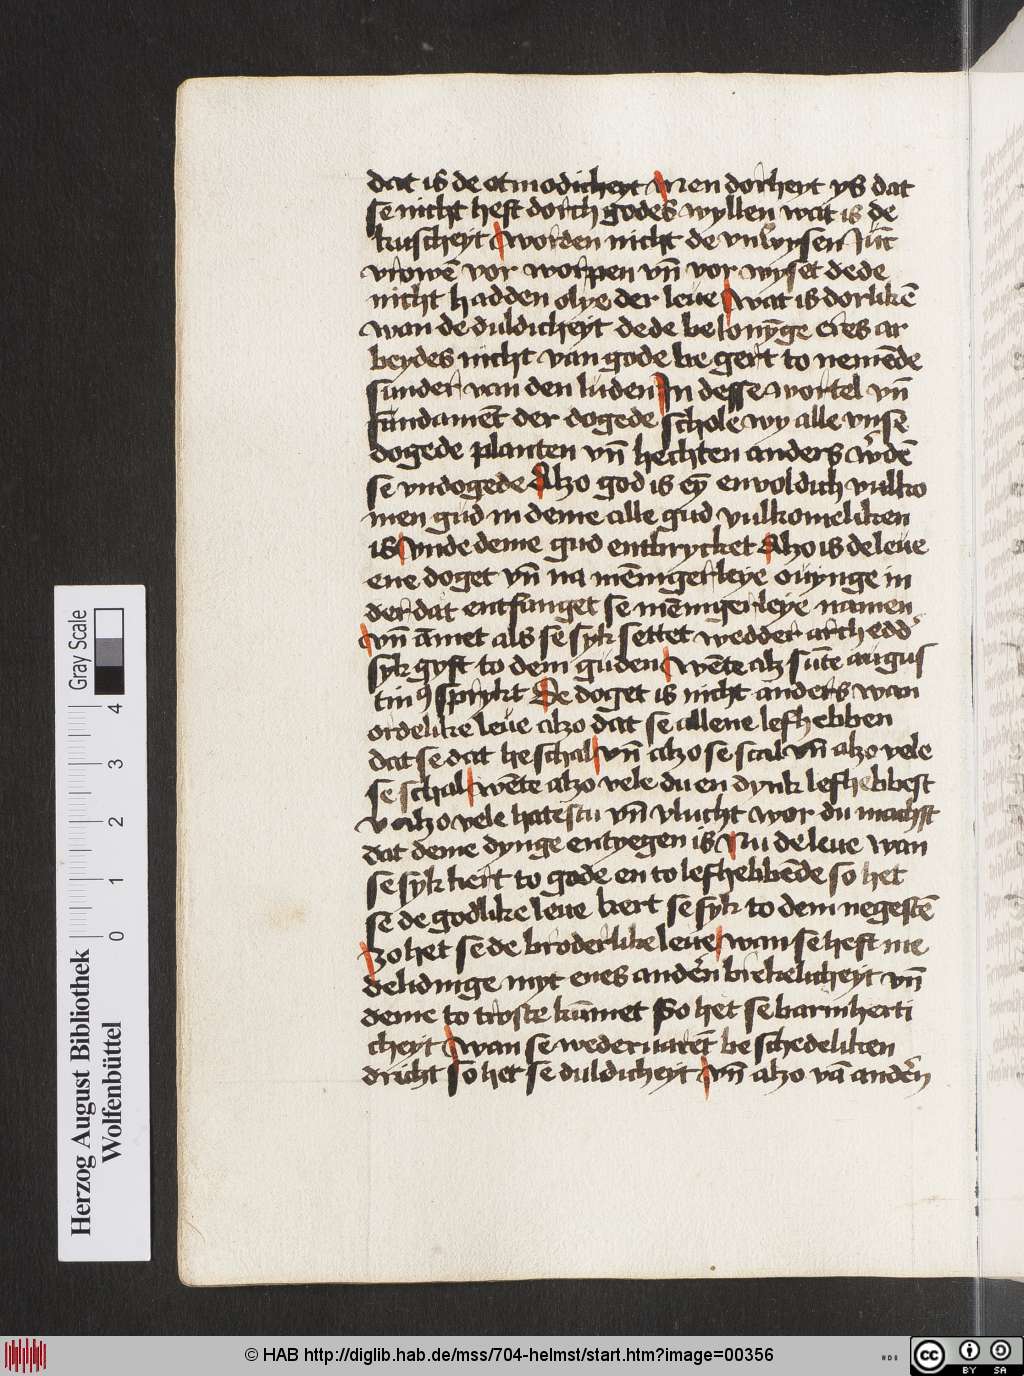 dat is de otmodicheyt Men dorheyt ys dat
se nicht heft dorch godes wyllen wat is de
kuscheyt Worden nicht de vnwysen Jūc
vrowē vor worpen vn̄ vor wyset dede
nicht hadden olye der leue wat is dorlikē
wan de duldicheyt dede belonȳge eres ar
beydes nicht van gode be gert to nemēde
sunder van den luden In desse wortel vn̄
fundamēt der dogede schole wy alle vnse
dogede planten vn̄ hechten anders wᵉdē
se vndogede Alzo god is eȳ envoldich vulko
men gud in deme alle gud vulkomeliken
is vnde deme gud entbrycket Alzo is de leue
ene doget vn̄ na mēnigerleye ouynge in
der dat entfanget se mēnigerleye namen
vn̄ āmet als se syk settet wedder arch edd'
syk gyft to dem guden wēte alz sūte augus
tinꝰ sprykt De doget is nicht anders wan
ordelike leue alzo dat se allene lefhebben
dat se dat he schal vn̄ alzo se scal vn̄ alzo vele
se schal wēte alzo vele du en dynk lefhebbest
v alzo vele hatestu vn̄ vlucht wor du machst
dat deme dynge entyegen is Nu de leue wan
se syk kert to gode en to lefhebbēde so het
se de godlike leue kert se syk to dem negestē
zo het se de broderlike leue wan se heft me
delidinge myt enes andern̄ brekelicheyt vn̄
deme to troste kūmet So het se barmherti
cheyt wan se wederuaret be schedeliken
dricht so het se duldicheyt vn̄ alzo vā andern̄
Herzog August Bibliothek
Wolfenbüttel
Gray Scale
0 1 2 3 4
© HAB http://diglib.hab.de/mss/704-helmst/start.htm?image=00356
cc BY SA